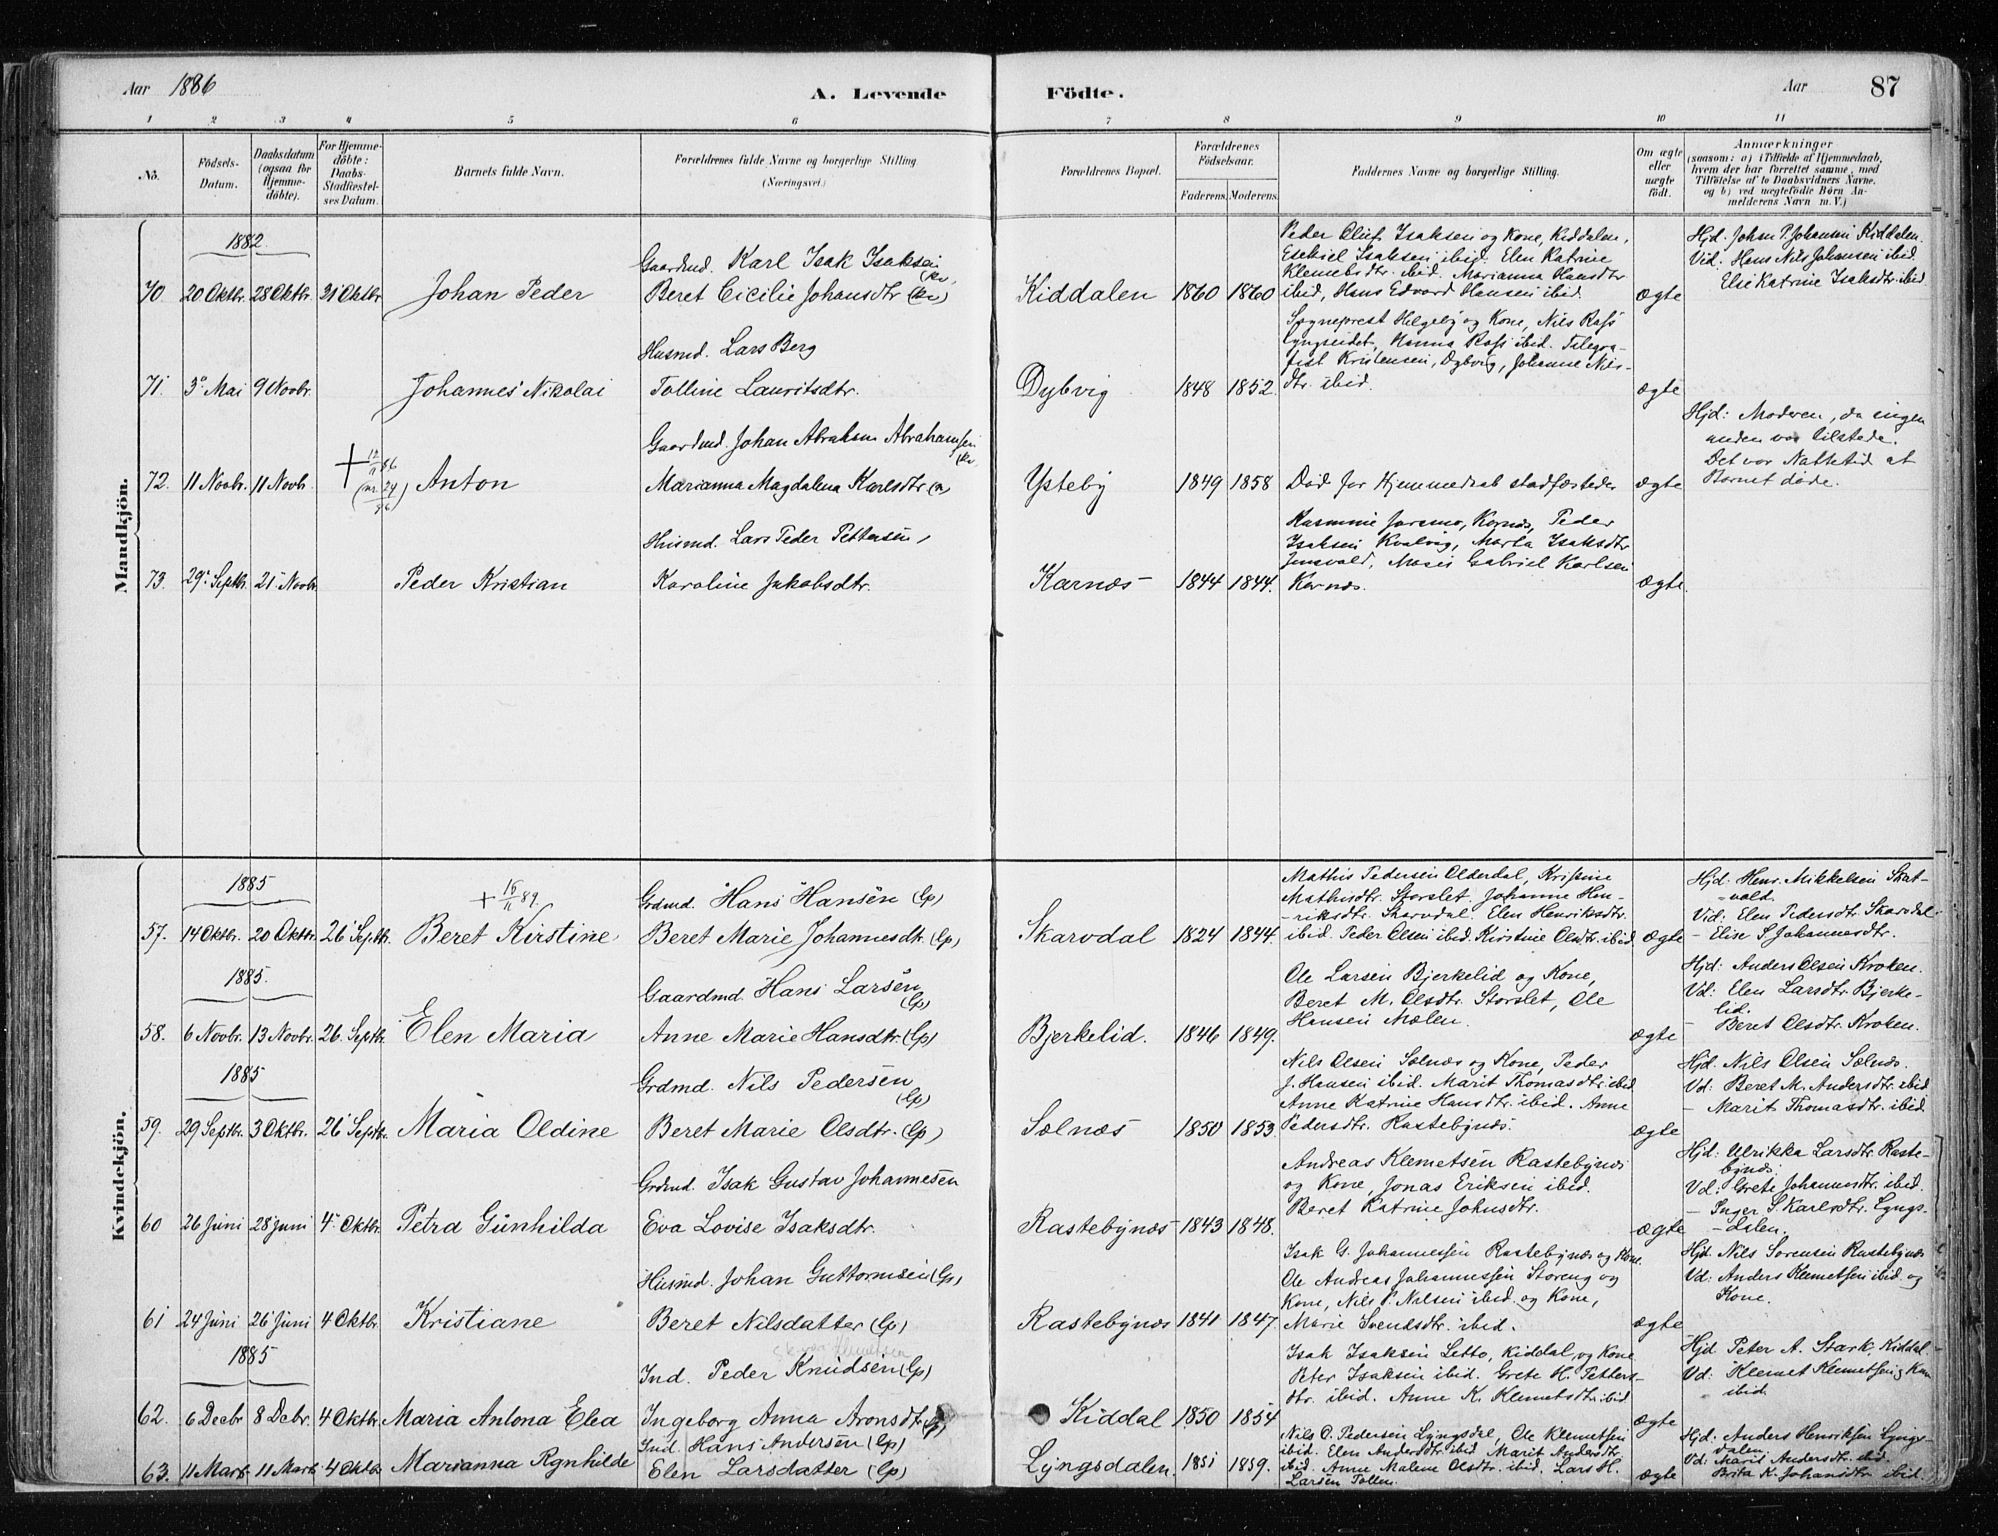 Aar 1886
A. Levende Födte.
Aar 87
1 2 3 4 5 6 7 8 9 10 11
No.
Födsels-Datum.
Daabsdatum (ogsaa for Hjemme-döbte).
For Hjemme-döbte: Daabs-Stadfæstel-ses Datum.
Barnets fulde Navn.
Forældrenes fulde Navne og borgerlige Stilling.
(Næringsvei.)
Forældrenes Bopæl.
Forældrenes Födselsaar.
Faderens. Moderens.
Faddernes Navne og borgerlige Stilling.
Om ægte eller uægte födt.
Anmærkninger
(saasom: a) i Tilfælde af Hjemmedaab,
hvem der har forrettet samme, med
Tilföielse af to Daabsvidners Navne,
og b) ved uægtefödte Börn An-
melderens Navn m. V.)
Mandkjön.
1882
70 20 Oktbr. 28 Oktbr. 31 Oktbr. Johan Peder
Gaardmd. Karl Isak Isaksen (kv)
Beret Cicilie Johansdtr (kv)
Kiddalen 1860 1860
Peder Oluf Isaksen og Kone, Kiddalen,
Esekiel Isaksen ibid. Elen Katrine
Klemetsdtr. ibid. Marianna Hansdtr
ibid, Hans Edvard Hansen ibid.
ægte
Hjd. Johan P. Johansen Kiddalen.
Vid: Hans Nils Johansen ibid.
Else Katrine Isaksdtr. ibid
71. 3 Mai 9 Novbr. Johannes Nikolai
Husmd. Lars Berg
Tolline Lauritsdtr.
Dybvig 1848 1852.
Sogneprest Helgeby og Kone, Nils Rass
Lyngseidet, Hanna Rass ibid. Telegra-
fist Kristensen, Dybvig, Johanne Nils-
dtr. ibid.
ægte
72. 11 Novbr. 11 Novbr. + 12/11 86 (nr. 24) Anton
Gaardmd. Johan Abraham Abrahamsen (kv
Marianna Magdalena Karlsdtr
Ysteby 1849 1858
Død før Hjemmedaab stadfæstedes
ægte
Hjd: Moderen, da ingen
anden var tilstede.
Det var Nattetid at
Barnet døde.
73. 29 Septbr. 21 Novbr. Peder Kristian
Husmd. Lars Peder Pettersen,
Karoline Jakobsdtr.
Karnæs 1844 1844.
Rasmine Joramo, Kornæs, Peder
Isaksen Kvalvig, Marta Isaksdtr
Jensvold, Moses Gabriel Karlsen
Karnæs.
ægte.
Kvindekjön.
1885
57. 14 Oktbr. 20 Oktbr. 26 Septbr. + 16/11 89. Beret Kirstine
Grdmd. Hans Hansen (lp)
Beret Marie Johannesdtr. (lp)
Skarvdal 1824 1844.
Mathis Pedersen Olderdal, Kristine
Mathisdtr. Storslet. Johanne Hen-
riksdtr. Skarvdal. Elen Henriksdtr.
ibid. Peder Olsen ibid. Kirstine Olsdtr. ibid.
ægte
Hjd: Henr. Mikkelsen Skat-
vold.
Vid: Elen Pedersdtr. Skarvdal
- Elise S. Johannesdtr.
1885.
58. 6 Novbr. 13 Novbr. 26. Septbr. Elen Maria
Gaardmd. Hans Larsen (lp)
Anne Marie Hansdtr. (lp)
Bjerkelid. 1846 1849.
Ole Larsen Bjerkelid og Kone,
Beret M. Olsdtr. Storslet, Ole
Hansen Mælen.
ægte
Hjd: Anders Olsen Kroken.
Vd: Elen Larsdtr. Bjerke-
lid.
- Beret Olsdtr. Kroken.
1885
59. 29 Septbr. 3 Oktbr. 26 Septbr. Maria Oldine
Grdmd. Nils Pedersen (lp)
Beret Marie Olsdtr. (lp)
Solnæs 1850 1853.
Nils Olsen Solnæs og Kone, Peder
J. Hansen ibid. Marit Thomasdtr. ibid
Anne Katrine Hansdtr. ibid. Anne
Pedersdtr. Rastebynæs.
ægte
Hjd: Nils Olsen Solnæs.
Vd: Beret M. Andersdtr. ibid
- Marit Thomasdtr. ibid
60 26 Juni 28 Juni 4 Oktbr. Petra Gunhilda
Grdmd. Isak Gustav Johannesen
Eva Lovise Isaksdtr.
Rastebynæs 1843 1848.
Andreas Klemetsen Rastebynæs
og Kone, Jonas Eriksen ibid.
Beret Katrine Johnsdtr.
ægte
Hjd: Ulrikka Larsdtr. Raste-
bynæs.
Vd: Grete Johannesdtr. ibid.
- Inger S. Karlsdtr. Lyngs-
dalen.
61 24 Juni 26 Juni 4 Oktbr. Kristiane
Husmd. Johan Guttormsen (lp)
Beret Nilsdatter (lp)
Rastebynæs 1841 1847.
Isak G. Johannessen Rastebynæs og Kone.
Ole Andreas Johannessen Storeng og
Kone, Nils P. Nilsen ibid. og Kone,
Marie Svendsdtr. ibid.
ægte
Hjd. Nils Sørensen Rastebynæs
Vd: Anders Klemetsen ibid. og
Kone.
1885
62. 6 Decbr 8 Decbr. 4 Oktbr. Maria Antona Elea
Ind. Peder Knudsen (lp)
Ingeborg Anna Aronsdtr (lp)
Kiddal 1850 1854
Isak Isaksen Letto, Kiddal, og Kone
Peter Isaksen ibid. Grete K. Petters-
dtr. ibid. Anne K. Klemetsdtr. ibid
ægte
Hjd Peter A. Stark, Kiddal
Vd: Klemet Klemetsen og Kone
ibid.
63. 11 Marts 11 Marts 4 Oktbr Marianna Rgnhilde
Ind. Hans Andersen (lp)
Elen Larsdatter (lp)
Lyngsdalen. 1851 1859.
Nils O. Pedersen Lyngsdal, Ole Klemetsen
ibid. Elen Andersdtr. ibid. Marit Andersdtr.
ibid. Anne Malene Olsdtr. ibid. Lars H.
Larsen Tollen.
ægte
Hjd: Anders Henriksen Lyngs-
dalen.
Vd: Marit Andersdtr. ibid.
Brita K. Johansdtr. ibid.